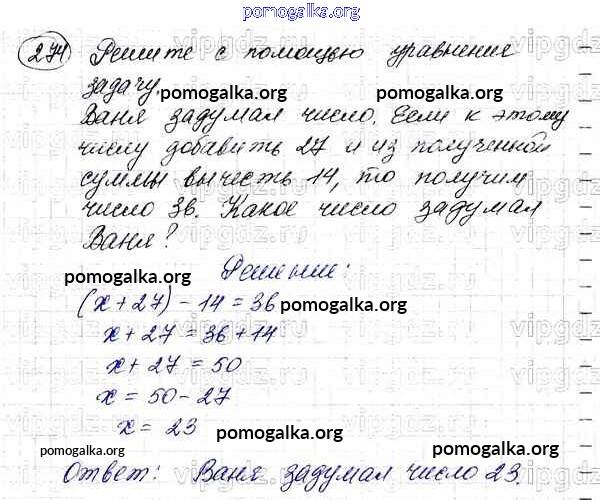 pomogalka.org
274 Решите с помощью уравнения
задачу.
pomogalka.org pomogalka.org
Ваня задумал число. Если к этому
числу добавить 27 и из полученной
суммы вычесть 14, то получим
число 36. Какое число задумал
Ваня?
Решение:
pomogalka.org pomogalka.org
(x + 27) - 14 = 36
pomogalka.org
x + 27 = 36 + 14
x + 27 = 50
x = 50 - 27
x = 23
pomogalka.org pomogalka.org
pomogalka.org
Ответ: Ваня задумал число 23.